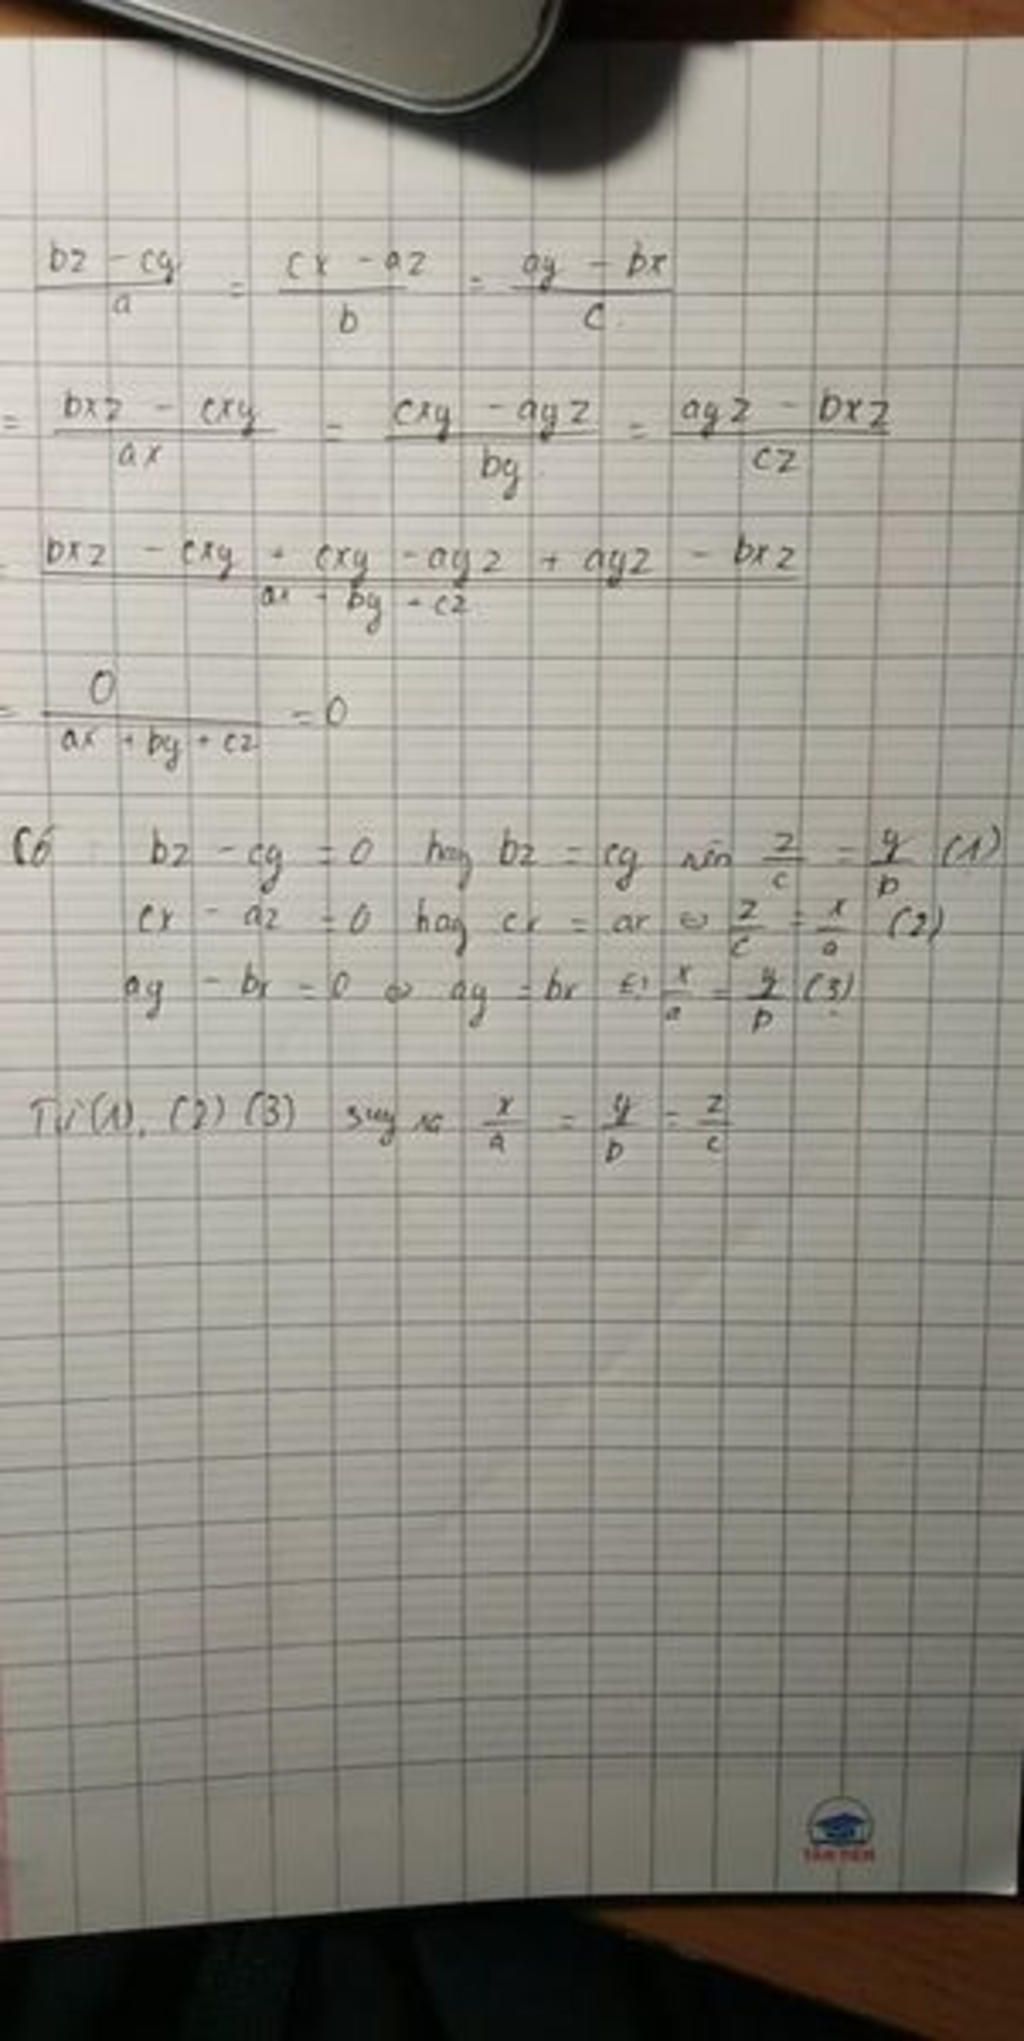 bz - cy / a = cx - az / b = ay - bx / c
= bxz - cxy / ax = cxy - ayz / by = ayz - bxz / cz
= bxz - cxy + cxy - ayz + ayz - bxz / ax + by + cz
= 0 / ax + by + cz = 0
Có bz - cy = 0 hay bz = cy nên z/c = y/b (1)
cx - az = 0 hay cx = ax ⇔ z/c = x/a (2)
ay - bx = 0 ⇔ ay = bx ⇔ x/a = y/b (3)
Từ (1), (2) (3) suy ra x/a = y/b = z/c